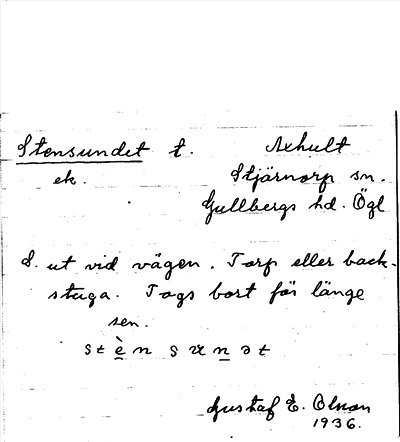 Stensundet t. Axhult
ek. Stjärnorp sn.
Gullbergs hd. Ögl
S. ut vid vägen. Torp eller back-
stuga. Togs bort för länge
sen.
st è n s ʉ n ə t
Gustaf E. Olson
1936.